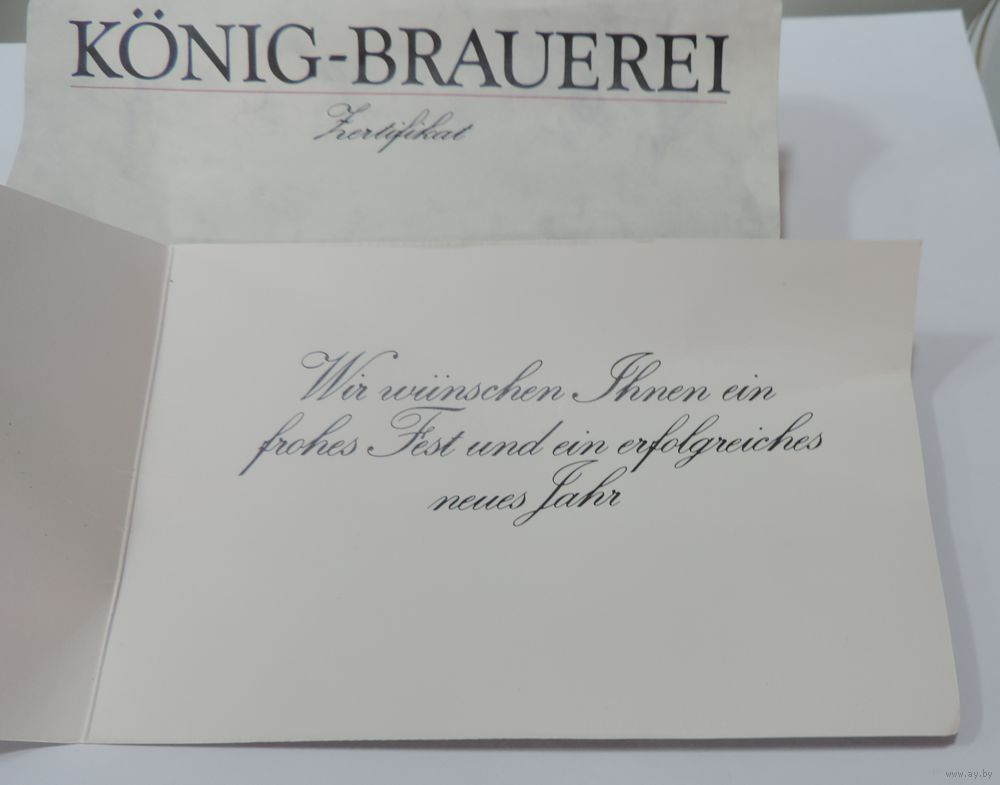 KÖNIG-BRAUEREI
Zertifikat
Wir wünschen Ihnen ein
frohes Fest und ein erfolgreiches
neues Jahr
www.ay.by